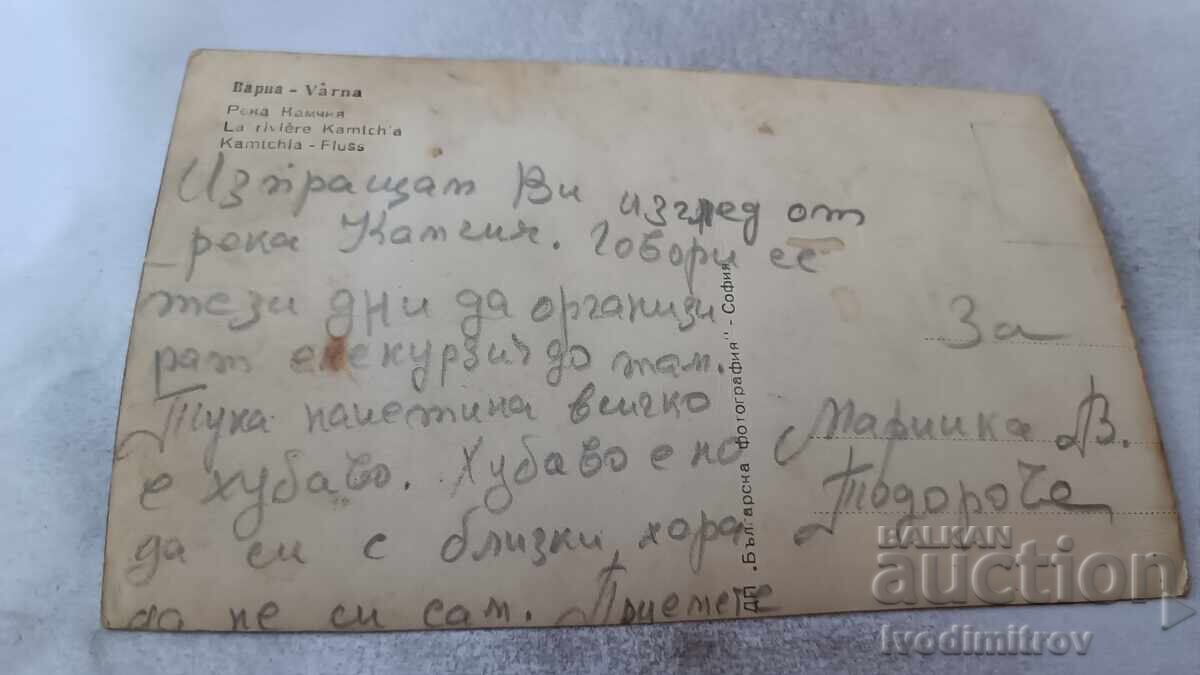 Варна - Varna
Река Камчия
La rivière Kamtchia
Kamtchia - Fluss
Изпращам Ви изглед от
река Камчия. Говори се
тези дни да организи
рат екскурзия до там.
Тука наистина всичко
е хубаво. Хубаво е но
да си с близки хора
да не си сам. Приемете
ДП „Българска фотография" - София
За
Марийка В.
Тодорова
BALKAN
auction
Ivodimitrov